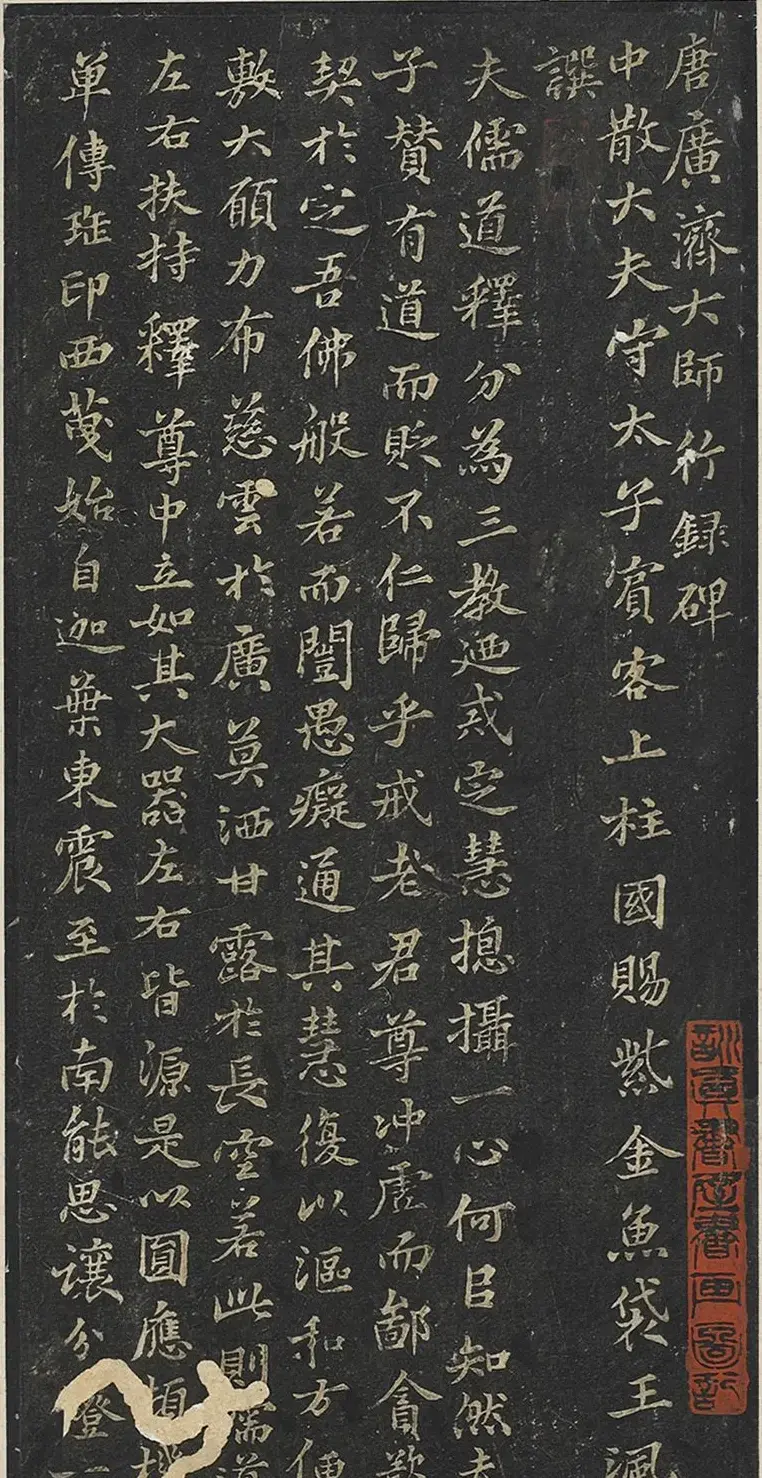 唐廣濟大師行録碑
中散大夫守太子賓客上柱國賜紫金魚袋王諷
譔
夫儒道釋分為三教廼戒定慧揔攝一心何㠯知然夫
子賛有道而貶不仁歸乎戒老君尊冲虛而鄙貪欲
契於定吾佛般若而闓愚癡通其慧復以漚和方便
敷大願力布慈雲於廣莫洒甘露於長空若此則儒道
左右扶持釋尊中立如其大器左右皆源是以圓應頓機
單傳誕印西蔑始自迦葉東震至於南能思讓分燈一